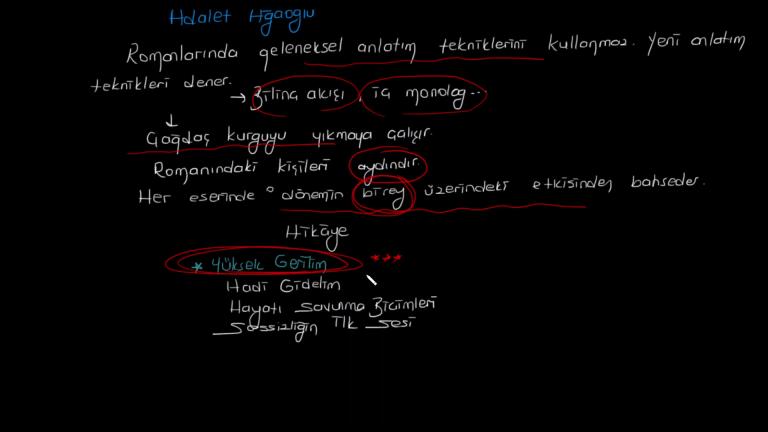 Adalet Ağaoğlu
Romanlarında geleneksel anlatım tekniklerini kullanmaz. Yeni anlatım
teknikleri dener.
→ Bilinç akışı, iç monolog...
↓
Çağdaş kurguyu yıkmaya çalışır.
Romanındaki kişileri aydındır.
Her eserinde o dönemin birey üzerindeki etkisinden bahseder.
Hikâye
* Yüksek Gerilim ***
Hadi Gidelim
Hayatı Savunma Biçimleri
Sessizliğin İlk Sesi